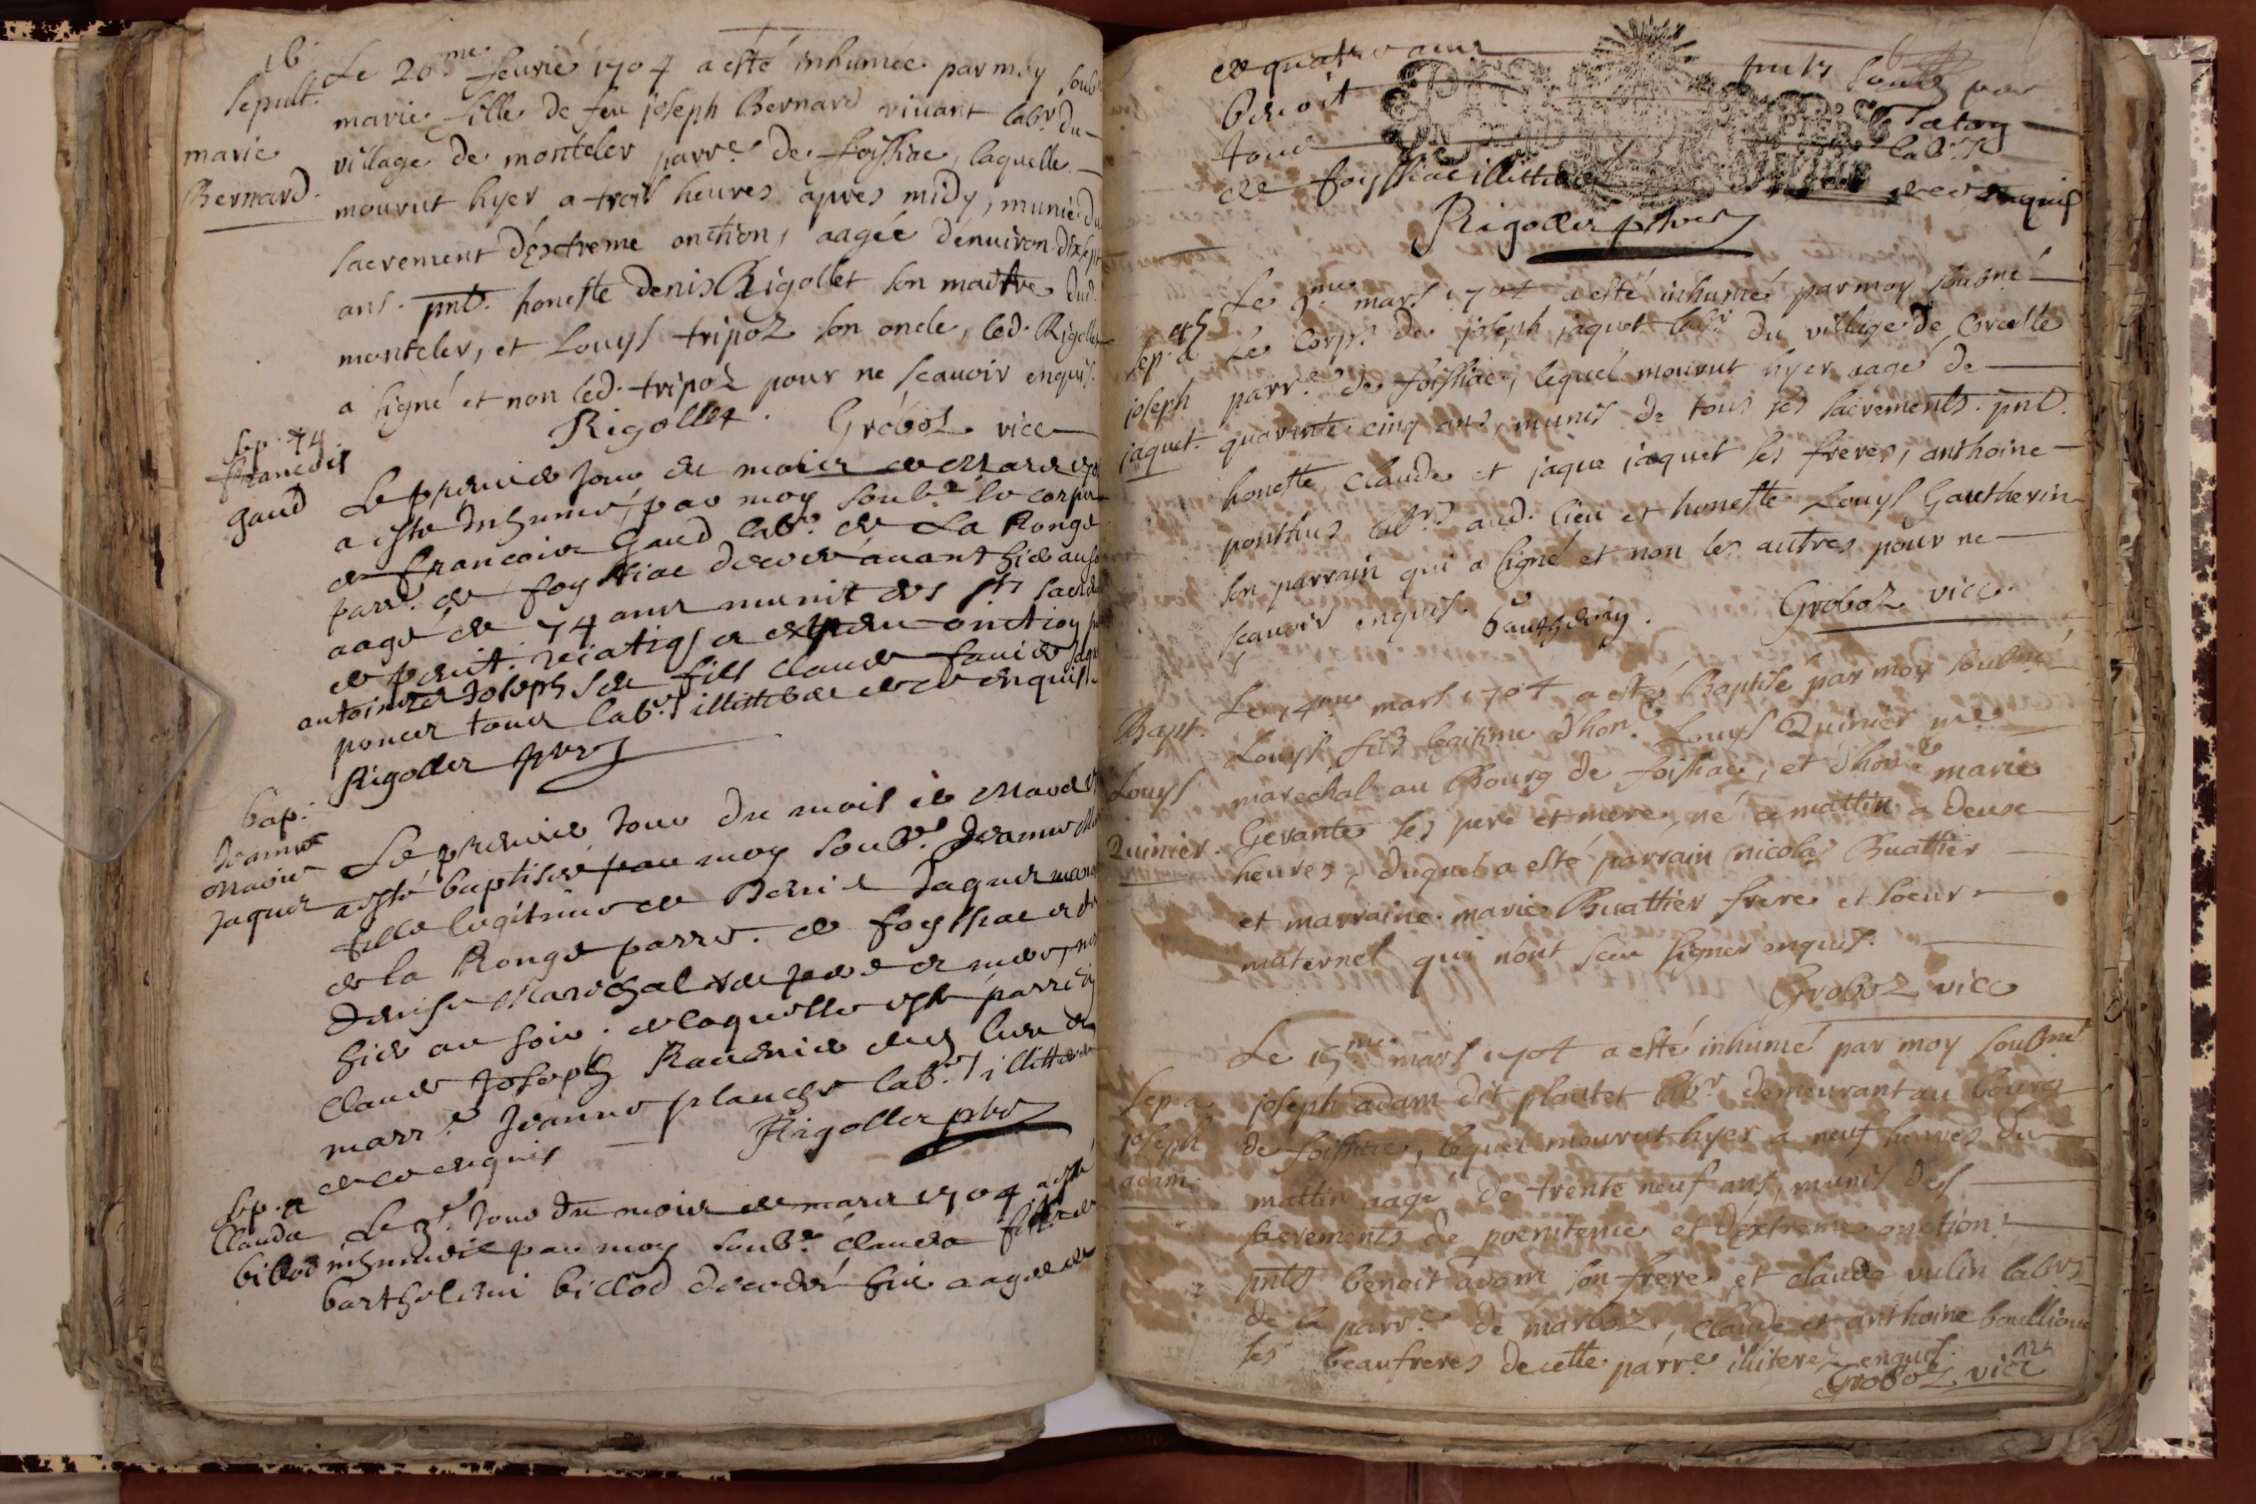 16
Sepult.
marie
Bernard.
Le 20me feurié 1704 a esté inhumée par moy soub
marie fille de feu joseph Bernard viuant labr. du
village de monteler parre. de foissiac, laquelle
mourut hyer a trois heures apres midy, munie du
sacrement d'extreme onction, aagée d'enuiron dixsept
ans. pnts. honeste denis Rigollet son maitre dud.
monteler, et Louys tripoz son oncle, led. Rigollet
a signé et non led. tripoz pour ne scauoir enquis.
Rigollet. Groboz vice
Sep. 74
francois
gaud
Le premier Jour du mois de Mars 170
a este Inhumé, par moy soub.e le corps
de francois Gaud labr. de La Ronge
parre. de foyssiac decedé auant hier au so
aagé de 74 ans munit des sts sacre
de penit. viatiq et extreme onction
antoine et Joseph ses fils claude
poncet tous labrs illitteres de ce enquis
Rigollet pbre
bap.
Jeanne
Marie
Jaquet
Le premier Jour du mois de Mars
a esté baptisée par moy soub.e Jeanne M
fille legitime de Benoit Jaquet
de la Ronge parre. de foyssiac et de
Denise Marechal ses pere et mere, née
hier au soir, de laquelle est parrein
Claude Joseph
marr.e Jeanne planche labrs illitteres
de ce enquis Rigollet pbre
Sep. a
Clauda
billod
Le 3e. Jour du mois de mars 1704 a esté
inhumée par moy soub.e clauda fille de
barthelemi billod decedé hier aagée de
de quatre ans
benoit
tous
labrs
de foyssiac illitteres de ce enquis
Rigollet pbre
Sep. 45
a
joseph
jaquet.
Le 9me mars 1704 a esté inhumé par moy soubné
Le corps de joseph jaquet labr. du village de Corcelle
parre. de foissiac, lequel mourut hyer aagé de
quarente cinq ans, munis de tous ses sacrements. pnts.
honeste claude et jaque jaquet ses freres, anthoine
ponthus labrs. aud. lieu et honeste Louys Gautherin
son parrain qui a signé et non les autres pour ne
scauoir enquis. Gautherin. Groboz vice
Bapt.
Louys
Quinier.
Le 14me mars 1704 a esté Baptisé par moy soubné
Louys fils legitime d'hon. Louys Quinier me
marechal au Bourg de foissiac, et d'hon. marie
Geranté ses pere et mere, né ce mattin a deux
heures, duquel a esté parrain nicolas Buattier
et marraine marie Buattier frere et soeur
maternel qui n'ont sceu signer enquis.
Groboz vice
Sep. a
joseph
adam
Le 15me mars 1704 a esté inhumé par moy soubné
joseph adam dit plautet labr. demeurant au bourg
de foissiac, lequel mourut hyer a neuf heures du
mattin aagé de trente neuf ans, munis des
sacrements de poenitence et d'extreme onction.
pnts benoit adam son frere et claude vulin labrs
de la parre. de marboz, claude et anthoine bouillioux
ses beaufreres de cette parre. illiterez enquis.
Groboz vice
124